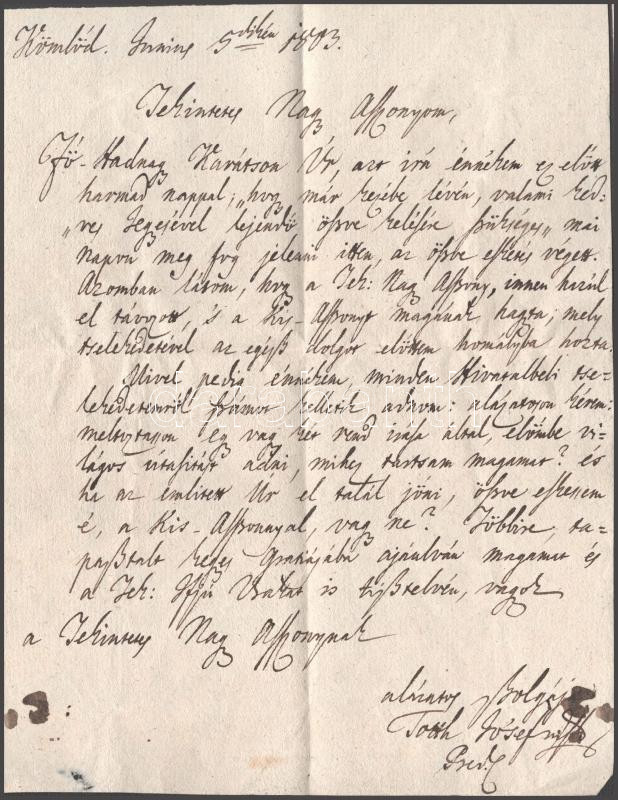 Kömlőd. Junius 5dikén 1803.
Tekintetes Nagy Aſſzonyom,
Fő-Hadnagy Karátson Úr, azt irá énnékem ez előtt
harmad nappal; „hogy már készbe lévén, valami ked-
„ves Jegesével lejendő öszve kelésére szükséges„ mái
napon meg fog jelenni itten, az öszve esketés végett.
Azomban látom, hogy a Tek: Nagy Aſſzony, innen hazúl
el távozott, és a Kis-Aſſzonyt magának hagta; mely
tselekedetével az egész dolgot előttem homályba hozta.
Mivel pedig énnékem, minden Hivatalbéli tse-
lekedetemről számot kelletik adnom: alázatoson kérem
méltoztasson egy vagy két rend irása által, előmbe vi-
lágos útasitást adni, mihez tartsam magamat? és
ha az emlitett Úr el talál jőni, öszve eskessem
é, a Kis-Aſſzonnyal, vagy ne? Többire, ta-
pasztalt kegyes Gratiájába ajánlván magamat és
a Tek: Ifjú Urakat is tisztelvén, vagyok
a Tekintetes Nagy Aſſzonynak
alázatos szolgája
Tóth Jósef
Préd.
darabanth